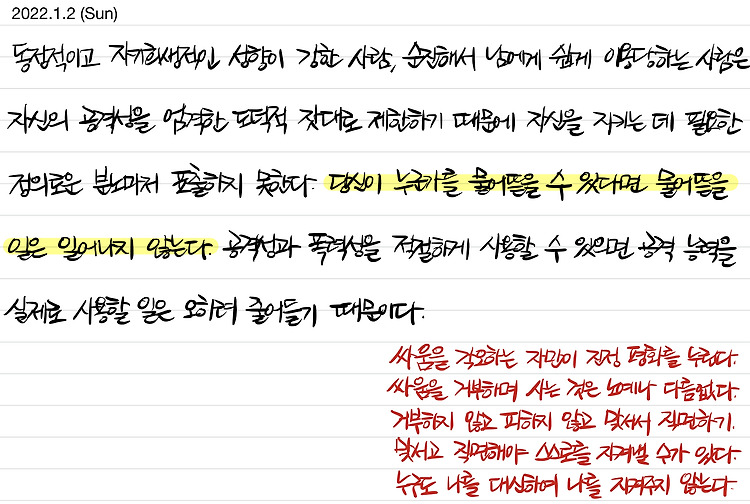 2022.1.2 (Sun)
동정적이고 자기희생적인 성향이 강한 사람, 순진해서 남에게 쉽게 이용당하는 사람은
자신의 공격성을 엄격한 도덕적 잣대로 제한하기 때문에 자신을 지키는 데 필요한
정의로운 분노마저 표출하지 못한다. 당신이 누군가를 물어뜯을 수 있다면 물어뜯을
일은 일어나지 않는다. 공격성과 폭력성을 적절하게 사용할 수 있으면 공격 능력을
실제로 사용할 일은 오히려 줄어들기 때문이다.
싸움을 각오하는 자만이 진정 평화를 누린다.
싸움을 거부하며 사는 것은 노예나 다름없다.
거부하지 않고 피하지 않고 맞서서 직면하기.
맞서고 직면해야 스스로를 지켜낼 수가 있다.
누구도 나를 대신하여 나를 지켜주지 않는다.